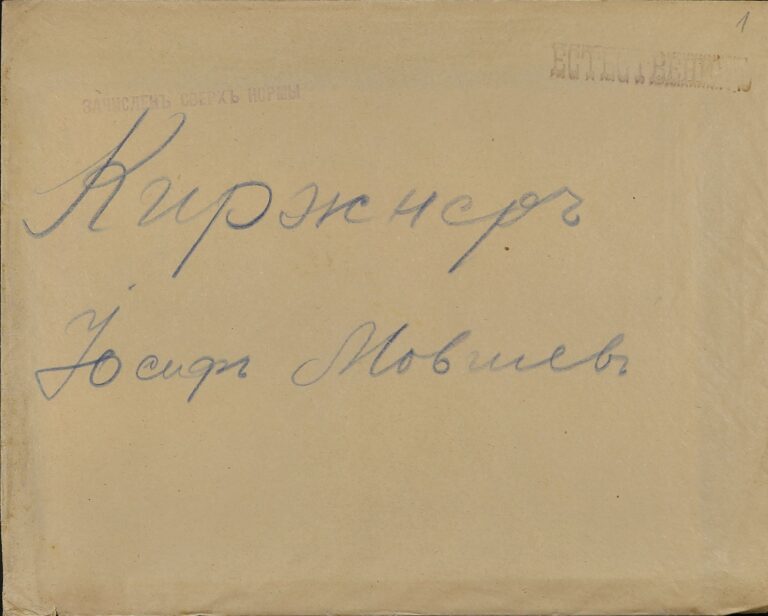 1
ЗАЧИСЛЕНЪ СВЕРХЪ НОРМЫ
Киржнеръ
Іосифъ Мовшевъ